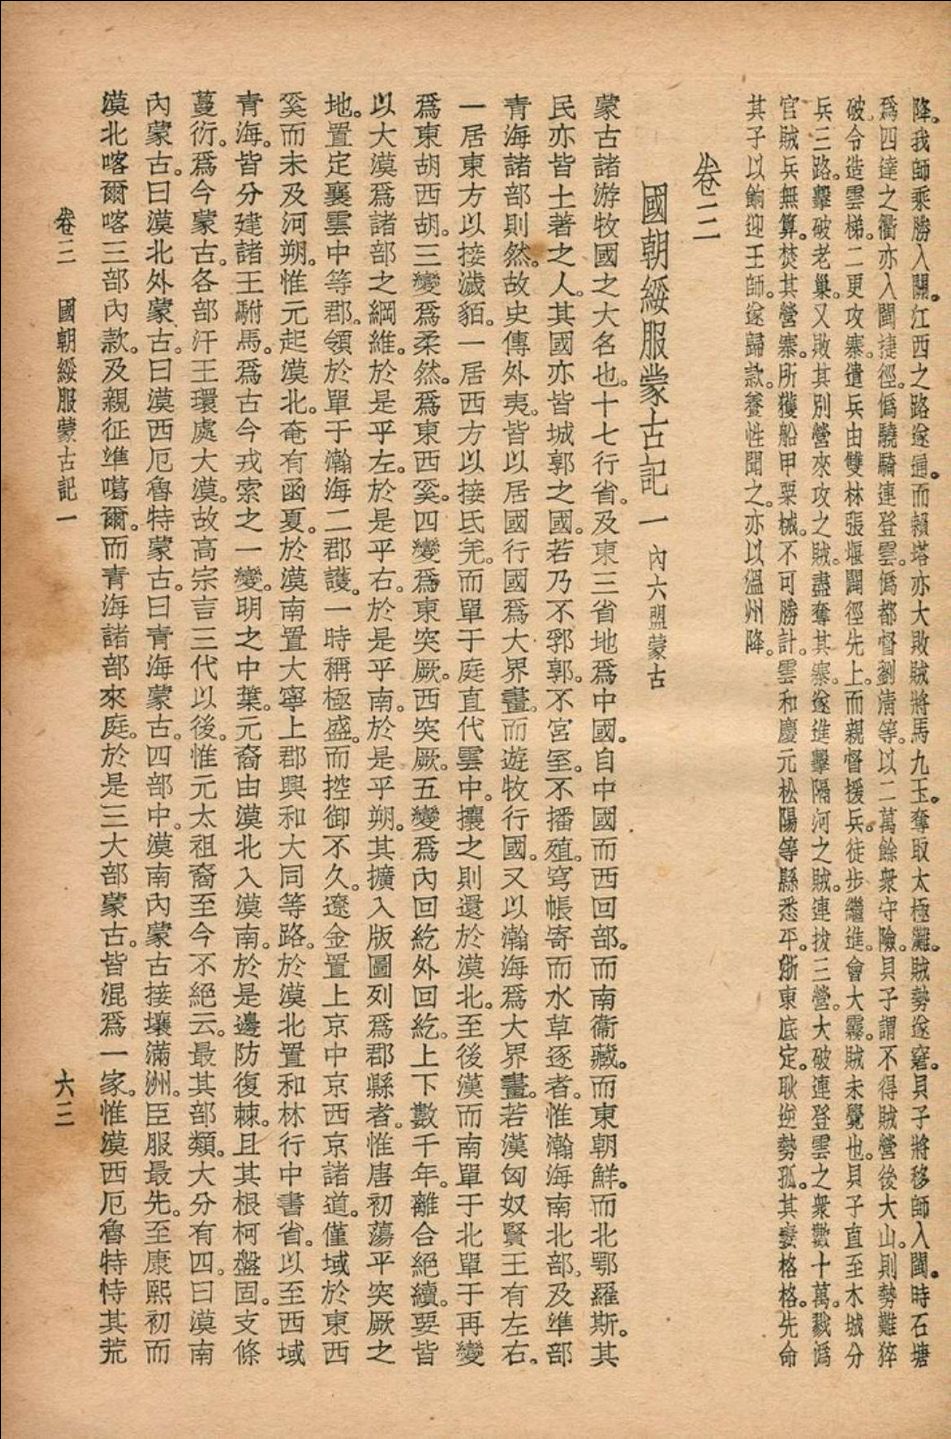 降。我師乘勝入關。江西之路遂通。而賴塔亦大敗賊將馬九玉。奪取太極灘。賊勢遂窘。貝子將移師入閩。時石塘
爲四達之衢。亦入閩捷徑。僞驍騎連登雲。僞都督劉淸等。以二萬餘衆守險。貝子謂不得賊營後大山。則勢難猝
破。令造雲梯。二更攻寨。遣兵由雙林張堰闢徑先上。而親督援兵。徒步繼進。會大霧。賊未覺也。貝子直至木城。分
兵三路。擊破老巢。又敗其別營來攻之賊。盡奪其寨。遂進擊隔河之賊。連拔三營。大破連登雲之衆數十萬。戮僞
官賊兵無算。焚其營寨。所獲船甲粟械。不可勝計。雲和慶元松陽等縣悉平。浙東底定。耿逆勢孤。其妻格格。先命
其子以餉迎王師。遂歸款。養性聞之。亦以溫州降。
卷三
國朝綏服蒙古記一 內六盟蒙古
蒙古諸游牧國之大名也。十七行省。及東三省地爲中國。自中國而西回部。而南衞藏。而東朝鮮。而北鄂羅斯。其
民亦皆土著之人。其國亦皆城郭之國。若乃不郛郭。不宮室。不播殖。穹帳寄而水草逐者。惟瀚海南北部。及準部
青海諸部則然。故史傳外夷。皆以居國行國爲大界畫。而遊牧行國。又以瀚海爲大界畫。若漢匈奴賢王有左右。
一居東方以接濊貊。一居西方以接氐羌。而單于庭直代雲中。攘之則還於漠北。至後漢而南單于北單于再變
爲東胡西胡。三變爲柔然。爲東西奚。四變爲東突厥。西突厥。五變爲內回紇外回紇。上下數千年。離合絕續。要皆
以大漠爲諸部之綱維。於是乎左。於是乎右。於是乎南。於是乎朔。其擴入版圖列爲郡縣者。惟唐初蕩平突厥之
地。置定襄雲中等郡。領於單于瀚海二郡護。一時稱極盛。而控御不久。遼金置上京中京西京諸道。僅域於東西
奚而未及河朔。惟元起漠北。奄有函夏。於漠南置大寧上郡興和大同等路。於漠北置和林行中書省。以至西域
青海。皆分建諸王駙馬。爲古今戎索之一變。明之中葉。元裔由漠北入漠南。於是邊防復棘。且其根柯盤固。支條
蔓衍。爲今蒙古。各部汗王環處大漠。故高宗言三代以後。惟元太祖裔至今不絕云。最其部類。大分有四。曰漠南
內蒙古。曰漠北外蒙古。曰漠西厄魯特蒙古。曰青海蒙古。四部中。漠南內蒙古接壤滿洲。臣服最先。至康熙初而
漠北喀爾喀三部內款。及親征準噶爾。而青海諸部來庭。於是三大部蒙古。皆混爲一家。惟漠西厄魯特恃其荒
卷三 國朝綏服蒙古記一 六三